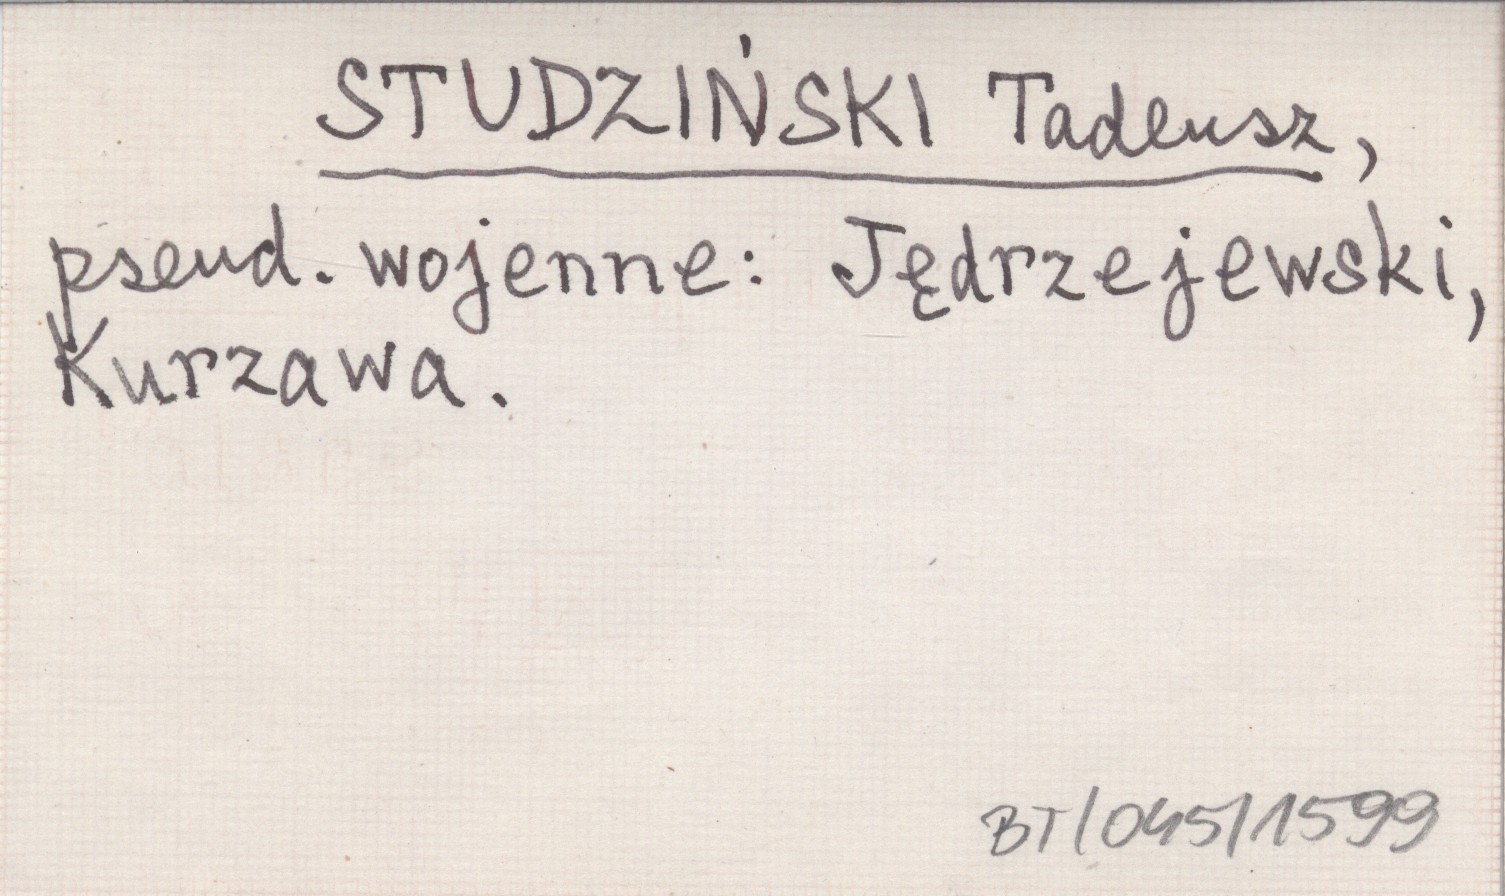 STUDZIŃSKI Tadeusz,
pseud. wojenne: Jędrzejewski,
Kurzawa.
BT/045/1599